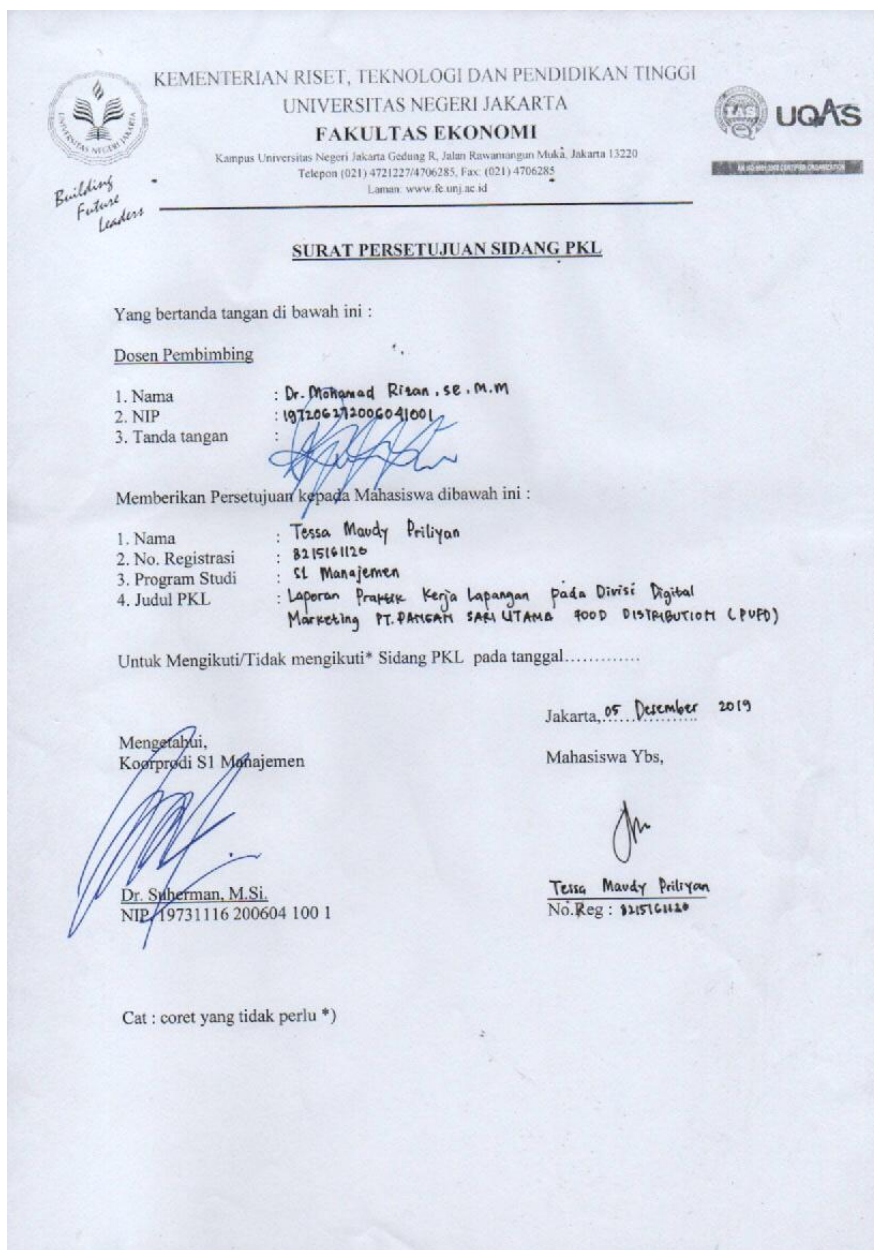 KEMENTERIAN RISET, TEKNOLOGI DAN PENDIDIKAN TINGGI
UNIVERSITAS NEGERI JAKARTA
FAKULTAS EKONOMI
Kampus Universitas Negeri Jakarta Gedung R, Jalan Rawamangun Muka, Jakarta 13220
Telepon (021) 4721227/4706285, Fax: (021) 4706285
Laman: www.fe.unj.ac.id
UNIVERSITAS NEGERI JAKARTA
Building
Future
Leaders
UQAS
SURAT PERSETUJUAN SIDANG PKL
Yang bertanda tangan di bawah ini :
Dosen Pembimbing
1. Nama : Dr. Mohamad Rizan, SE, M.M
2. NIP : 197206272006041001
3. Tanda tangan :
Memberikan Persetujuan kepada Mahasiswa dibawah ini :
1. Nama : Tessa Maudy Priliyan
2. No. Registrasi : 8215161120
3. Program Studi : S1 Manajemen
4. Judul PKL : Laporan Praktek Kerja Lapangan pada Divisi Digital
Marketing PT. PANGAN SARI UTAMA FOOD DISTRIBUTION (PUFD)
Untuk Mengikuti/Tidak mengikuti* Sidang PKL pada tanggal.............
Jakarta, 05 Desember 2019
Mengetahui,
Koorprodi S1 Manajemen
Mahasiswa Ybs,
Dr. Suherman, M.Si.
NIP. 19731116 200604 100 1
Tessa Maudy Priliyan
No.Reg : 8215161120
Cat : coret yang tidak perlu *)